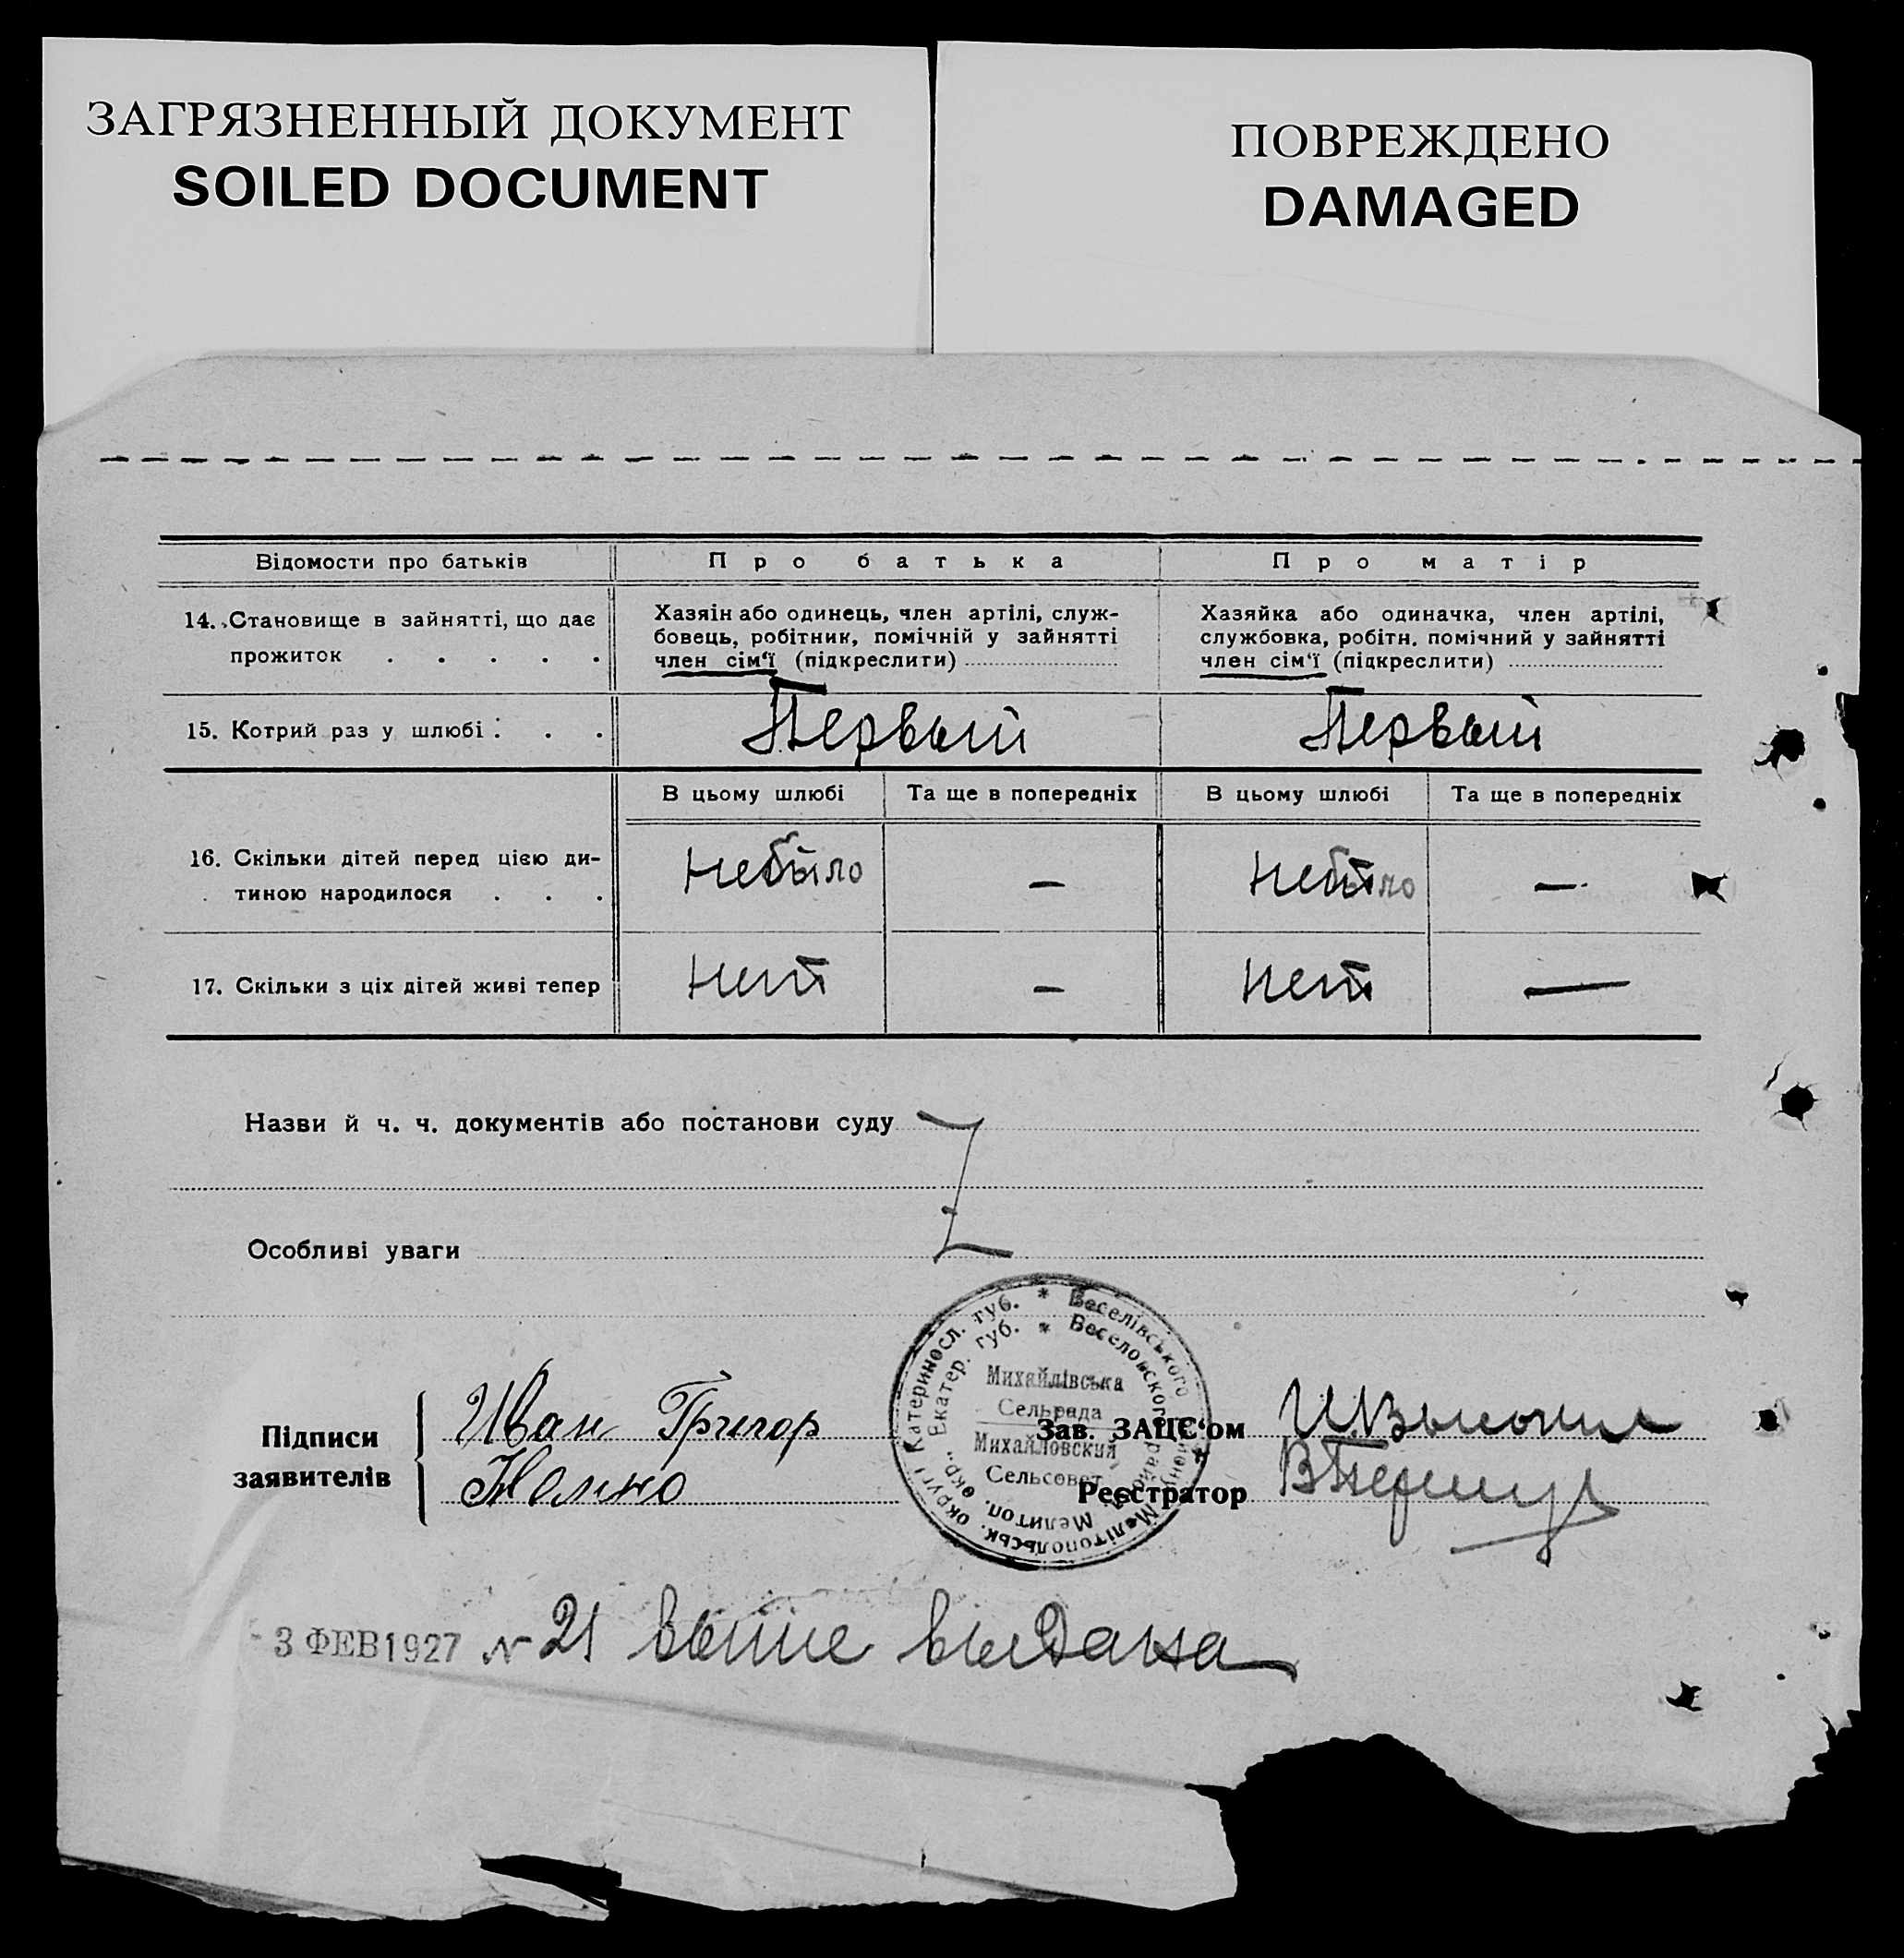 ЗАГРЯЗНЕННЫЙ ДОКУМЕНТ
SOILED DOCUMENT
ПОВРЕЖДЕНО
DAMAGED
Відомости про батьків
Про батька
Про матір
14. Становище в зайнятті, що дає
прожиток . . . . .
Хазяін або одинець, член артілі, служ-
бовець, робітник, помічній у зайнятті
член сім'ї (підкреслити)
Хазяйка або одиначка, член артілі,
службовка, робітн. помічний у зайнятті
член сім'ї (підкреслити)
15. Котрий раз у шлюбі . . .
Первый
Первый
В цьому шлюбі
Та ще в попередніх
В цьому шлюбі
Та ще в попередніх
16. Скільки дітей перед цією ди-
тиною народилося . . .
Небыло
—
Небыло
—
17. Скільки з ціх дітей живі тепер
Нет
—
Нет
—
Назви й ч. ч. документів або постанови суду
Особливі уваги
Підписи
заявителів
Иван Григор
* Веселівського району Мелітопольськ. округі Катериносл. губ.
* Веселовского район. Мелитоп. окр. Екатер. губ.
Михайлівська
Сельрада
Михайловский
Сельсовет
Зав. ЗАЦС'ом
Реєстратор
3 ФЕВ 1927 № 21 выпис выдана